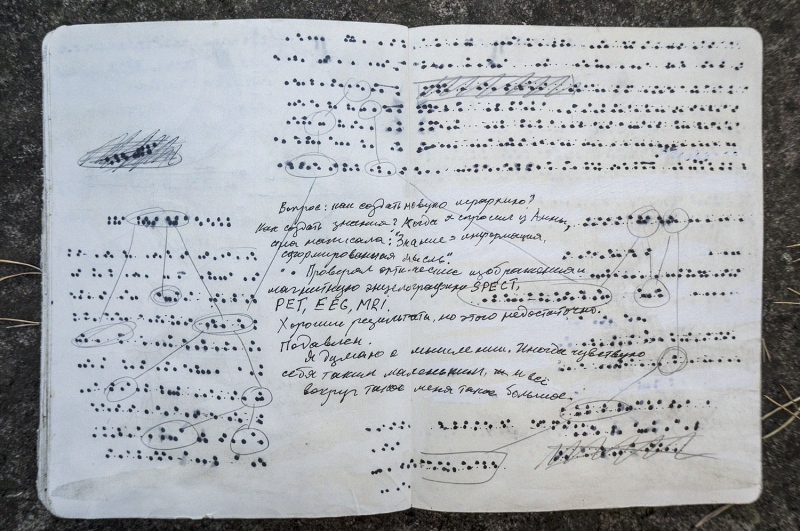 Вопрос: как создать новую иерархию?
Как создать знания? Когда я спросил у Анны,
она написала: "Знание = информация,
сформированная мысль".
Проверял оптические изображения и
магнитную энцелографию SPECT,
PET, EEG, MRI.
Хорошие результаты, но этого недостаточно.
Подавлен.
Я думаю о мышлении. Иногда чувствую
себя таким маленьким, и всё
вокруг меня такое большое.